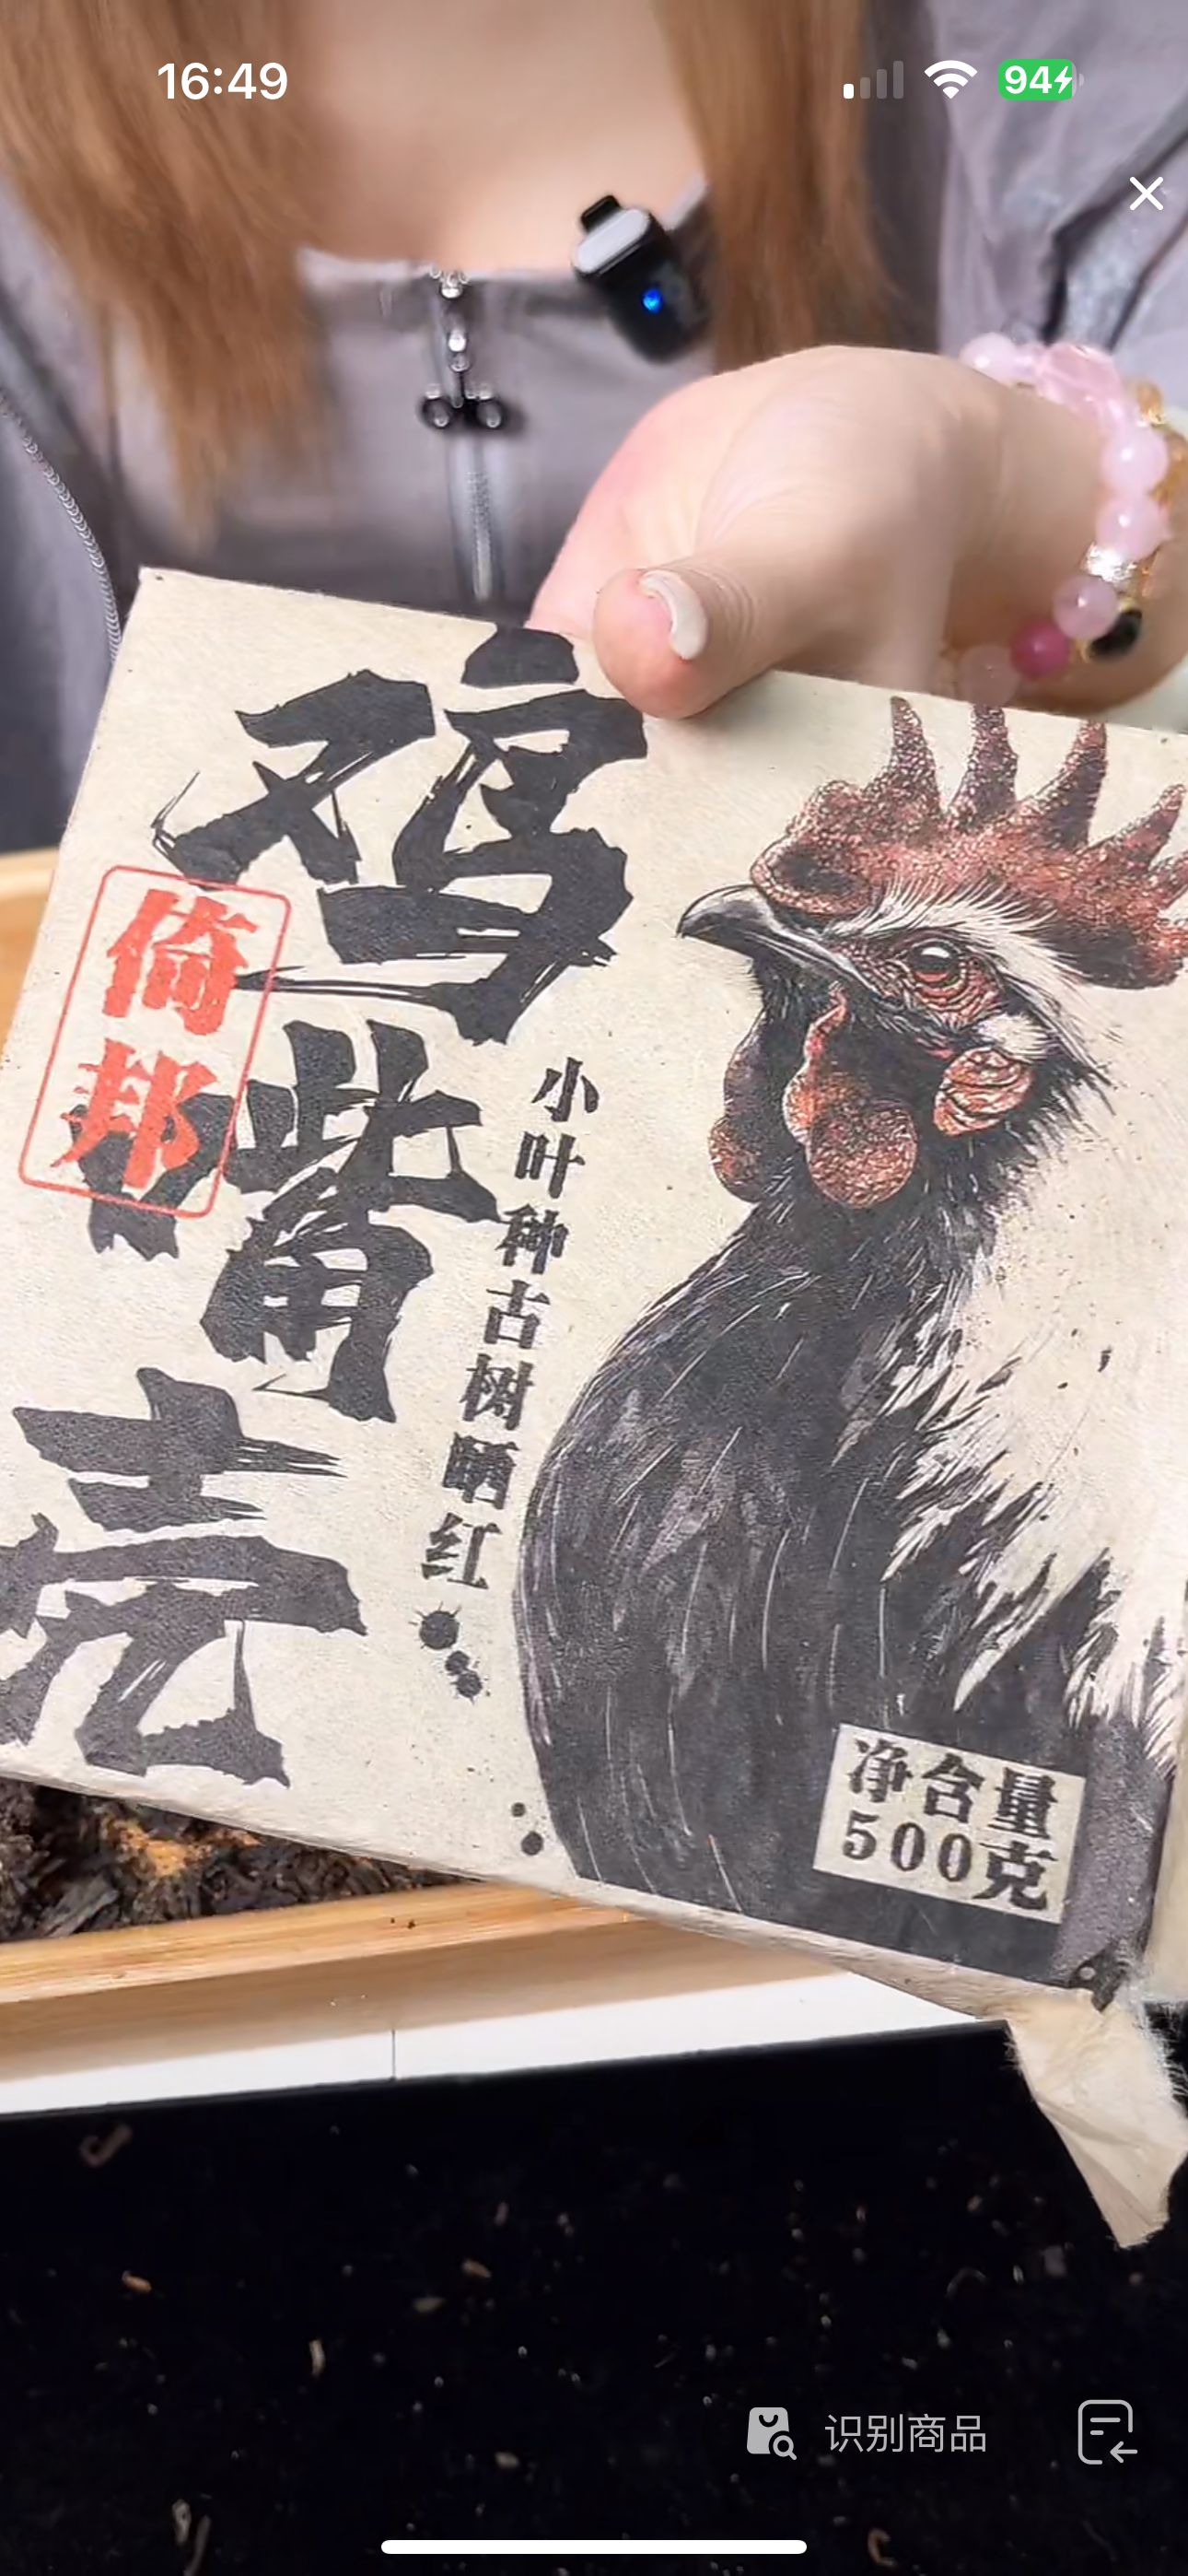 16:49
94
鸡嘴壳
倚邦
小叶种古树晒红
净含量
500克
识别商品